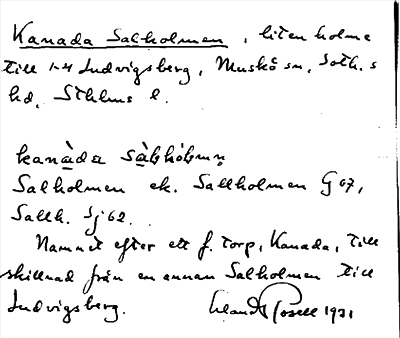 Kanada Salholmen, liten holme
till 1-4 Ludvigsberg, Muskö sn, Soth.s
hd, Sthlms l.
kanàda sàlhòlmn̥
Salholmen ek. Sallholmen G 67,
Sallh. Sj 62.
Namnet efter ett f. torp, Kanada, till
skillnad från en annan Salholmen till
Ludvigsberg. Rosell 1931